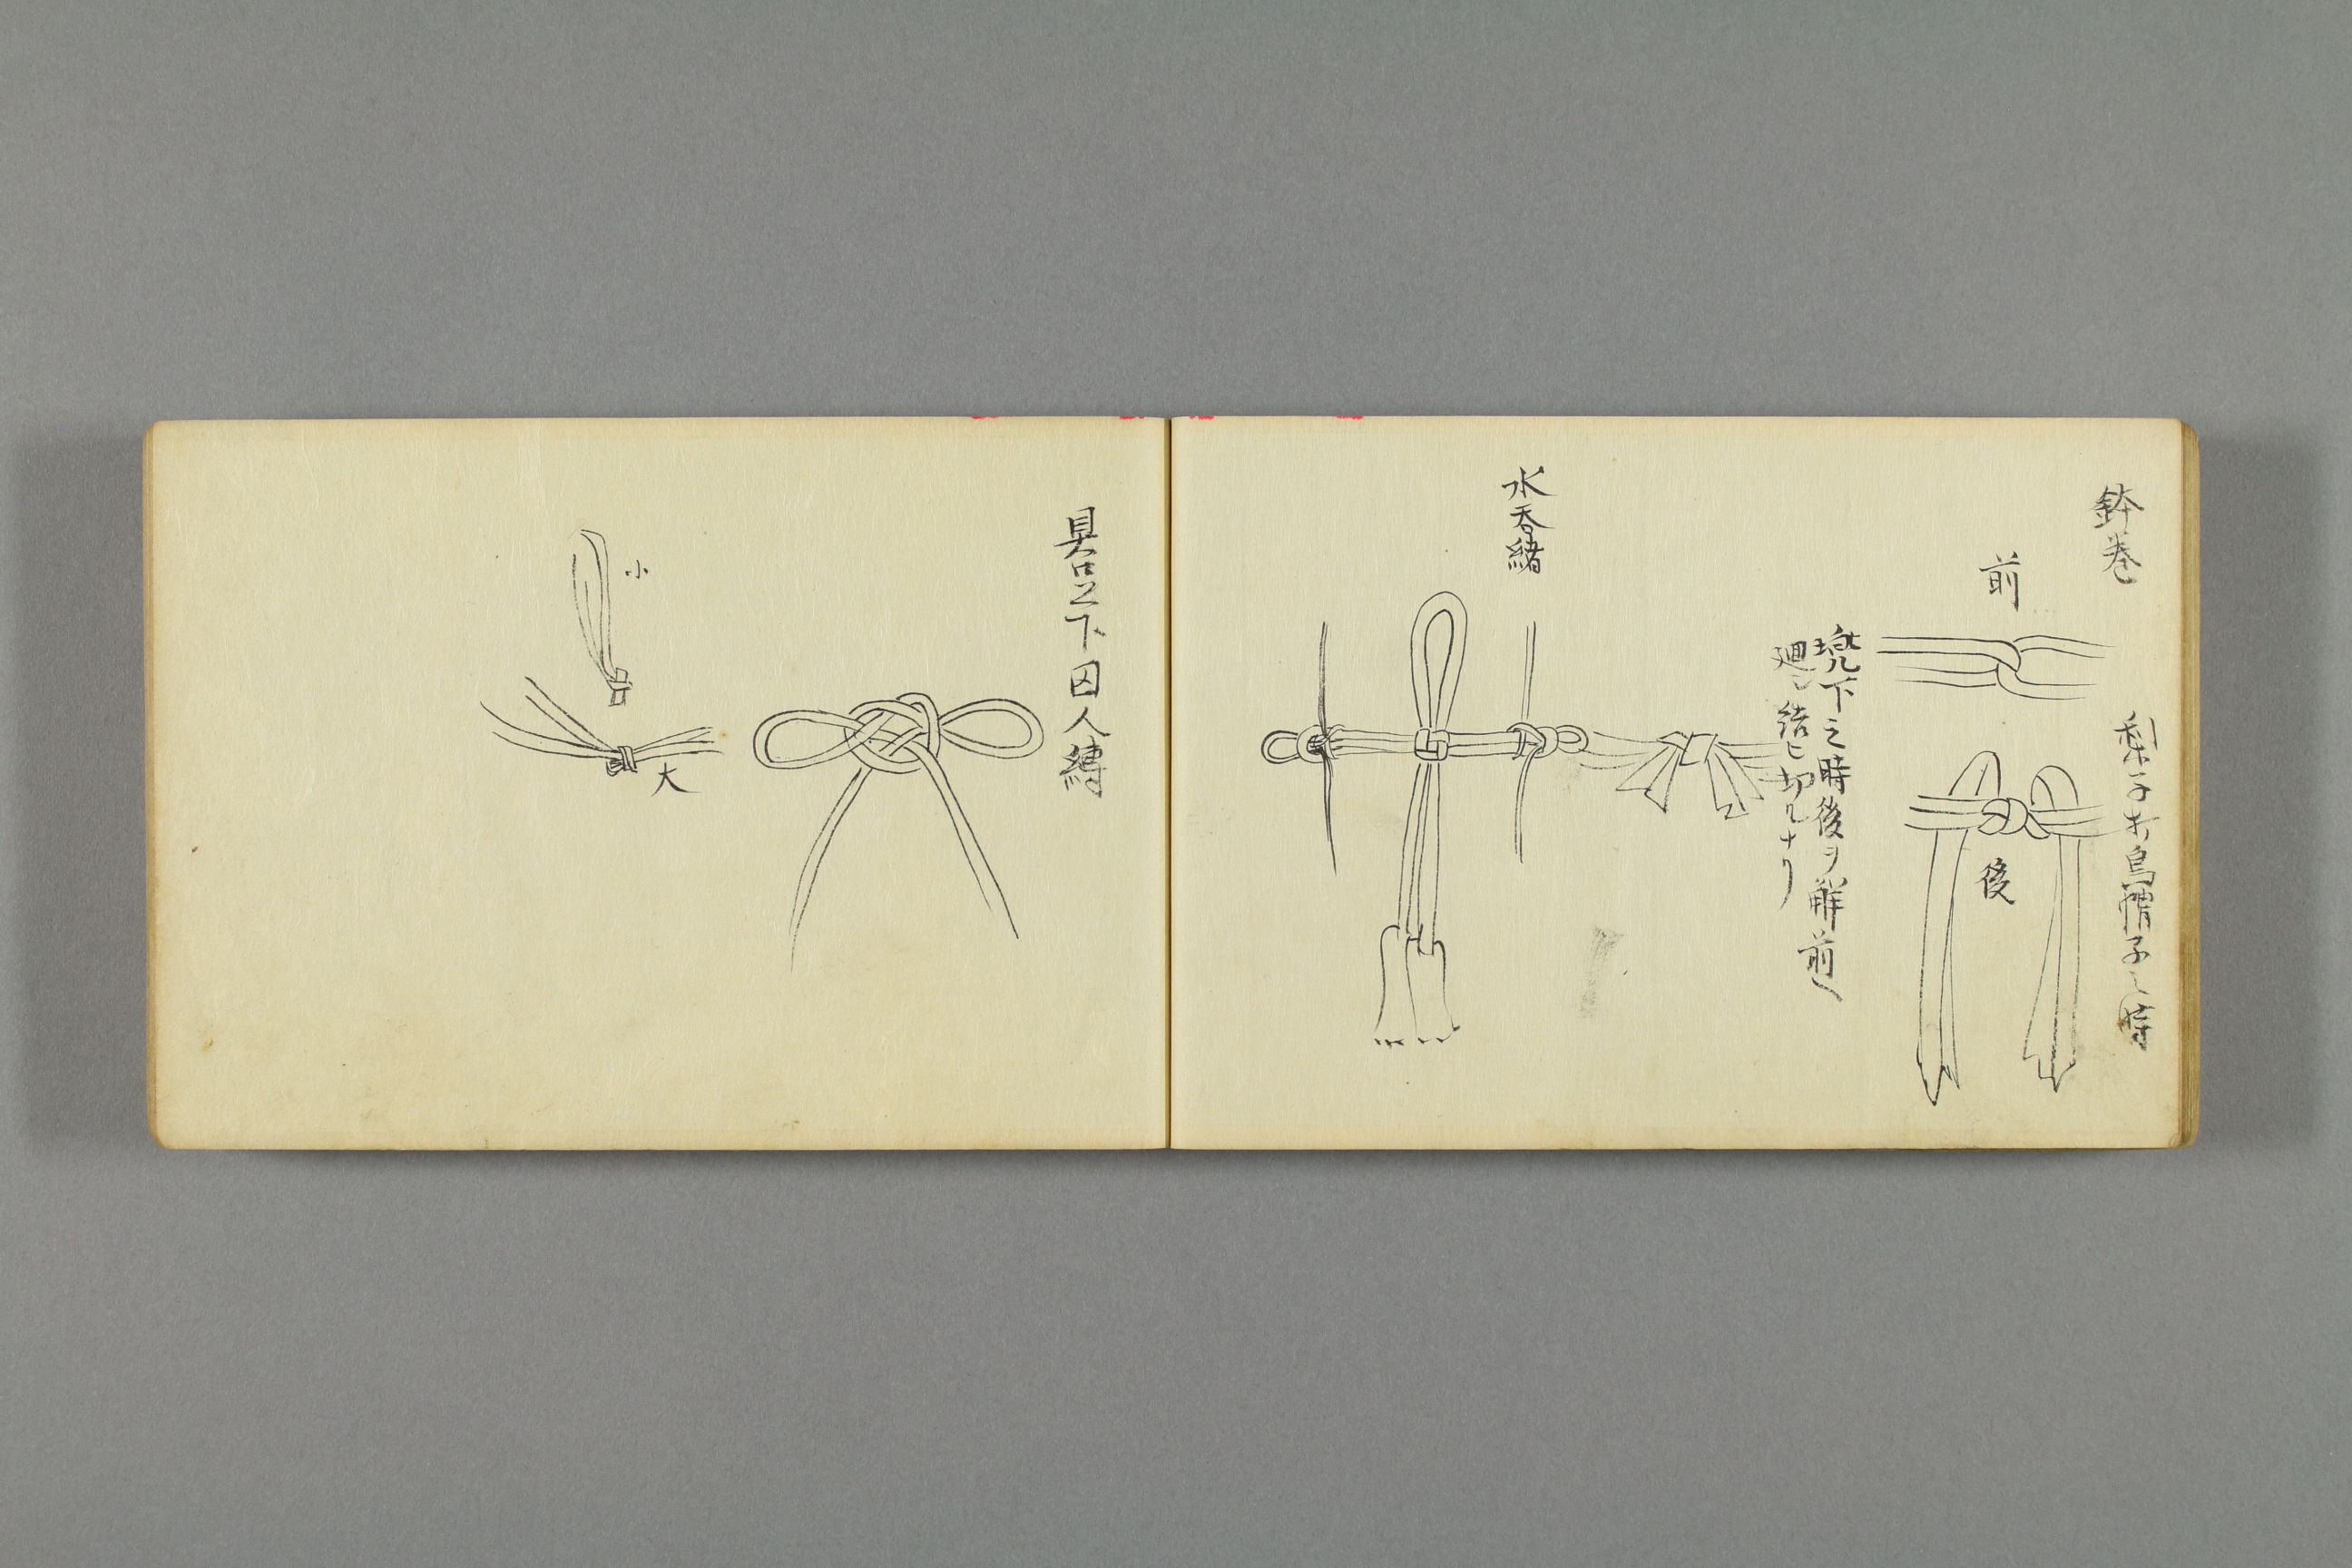 鉢巻
梨子打烏帽子之時
前
後
兜下之時後ヲ解前ヘ
廻シ結ヒ切ルナリ
水呑緒
具足下囚人縛
小
大